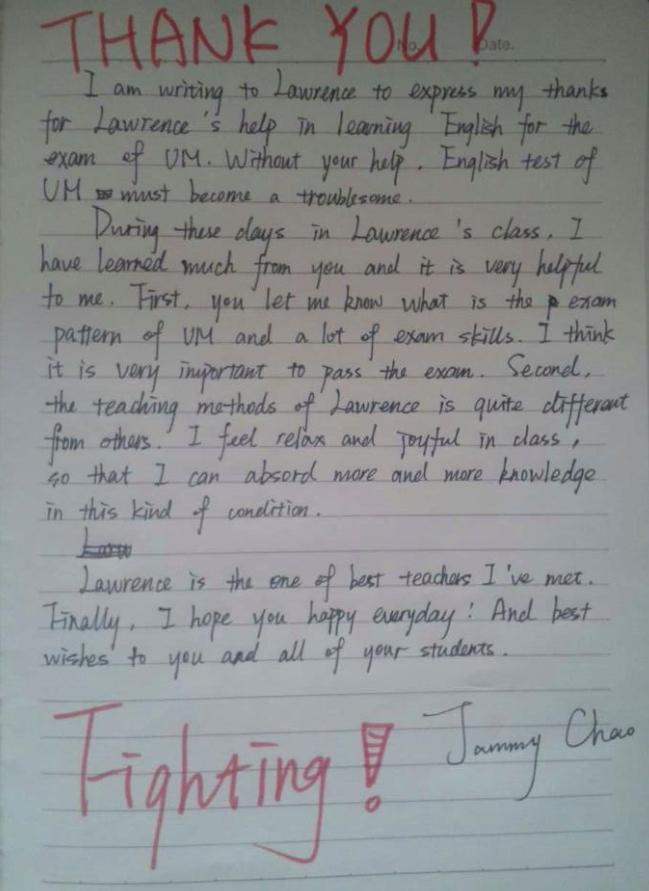 THANK YOU!
No. Date.
I am writing to Lawrence to express my thanks
for Lawrence's help in learning English for the
exam of UM. Without your help. English test of
UM must become a troublesome.
During these days in Lawrence's class, I
have learned much from you and it is very helpful
to me. First, you let me know what is the exam
pattern of UM and a lot of exam skills. I think
it is very important to pass the exam. Second,
the teaching methods of Lawrence is quite different
from others. I feel relax and joyful in class,
so that I can absord more and more knowledge
in this kind of condition.
Lawrence is the one of best teachers I've met.
Finally, I hope you happy everyday! And best
wishes to you and all of your students.
Fighting!
Jammy Chao